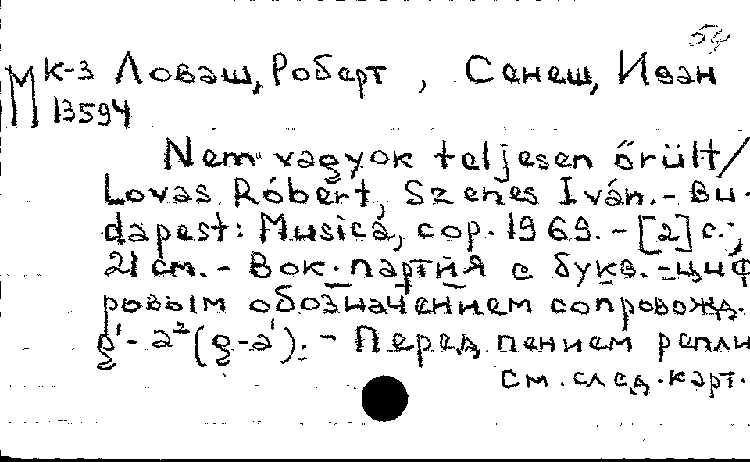 54
М К-3 Ловаш, Роберт, Сенеш, Иван
13594
Nem vagyok teljesen őrült/
Lovas Róbert, Szenes Iván.-Bu-
dapest: Musica, cop. 1969.-[2]с.;
21 см.-Вок. партия с букв.-циф
ровым обозначением сопровожд.
g¹-a²(g-a¹).-Перед пением репли
см. след. карт.